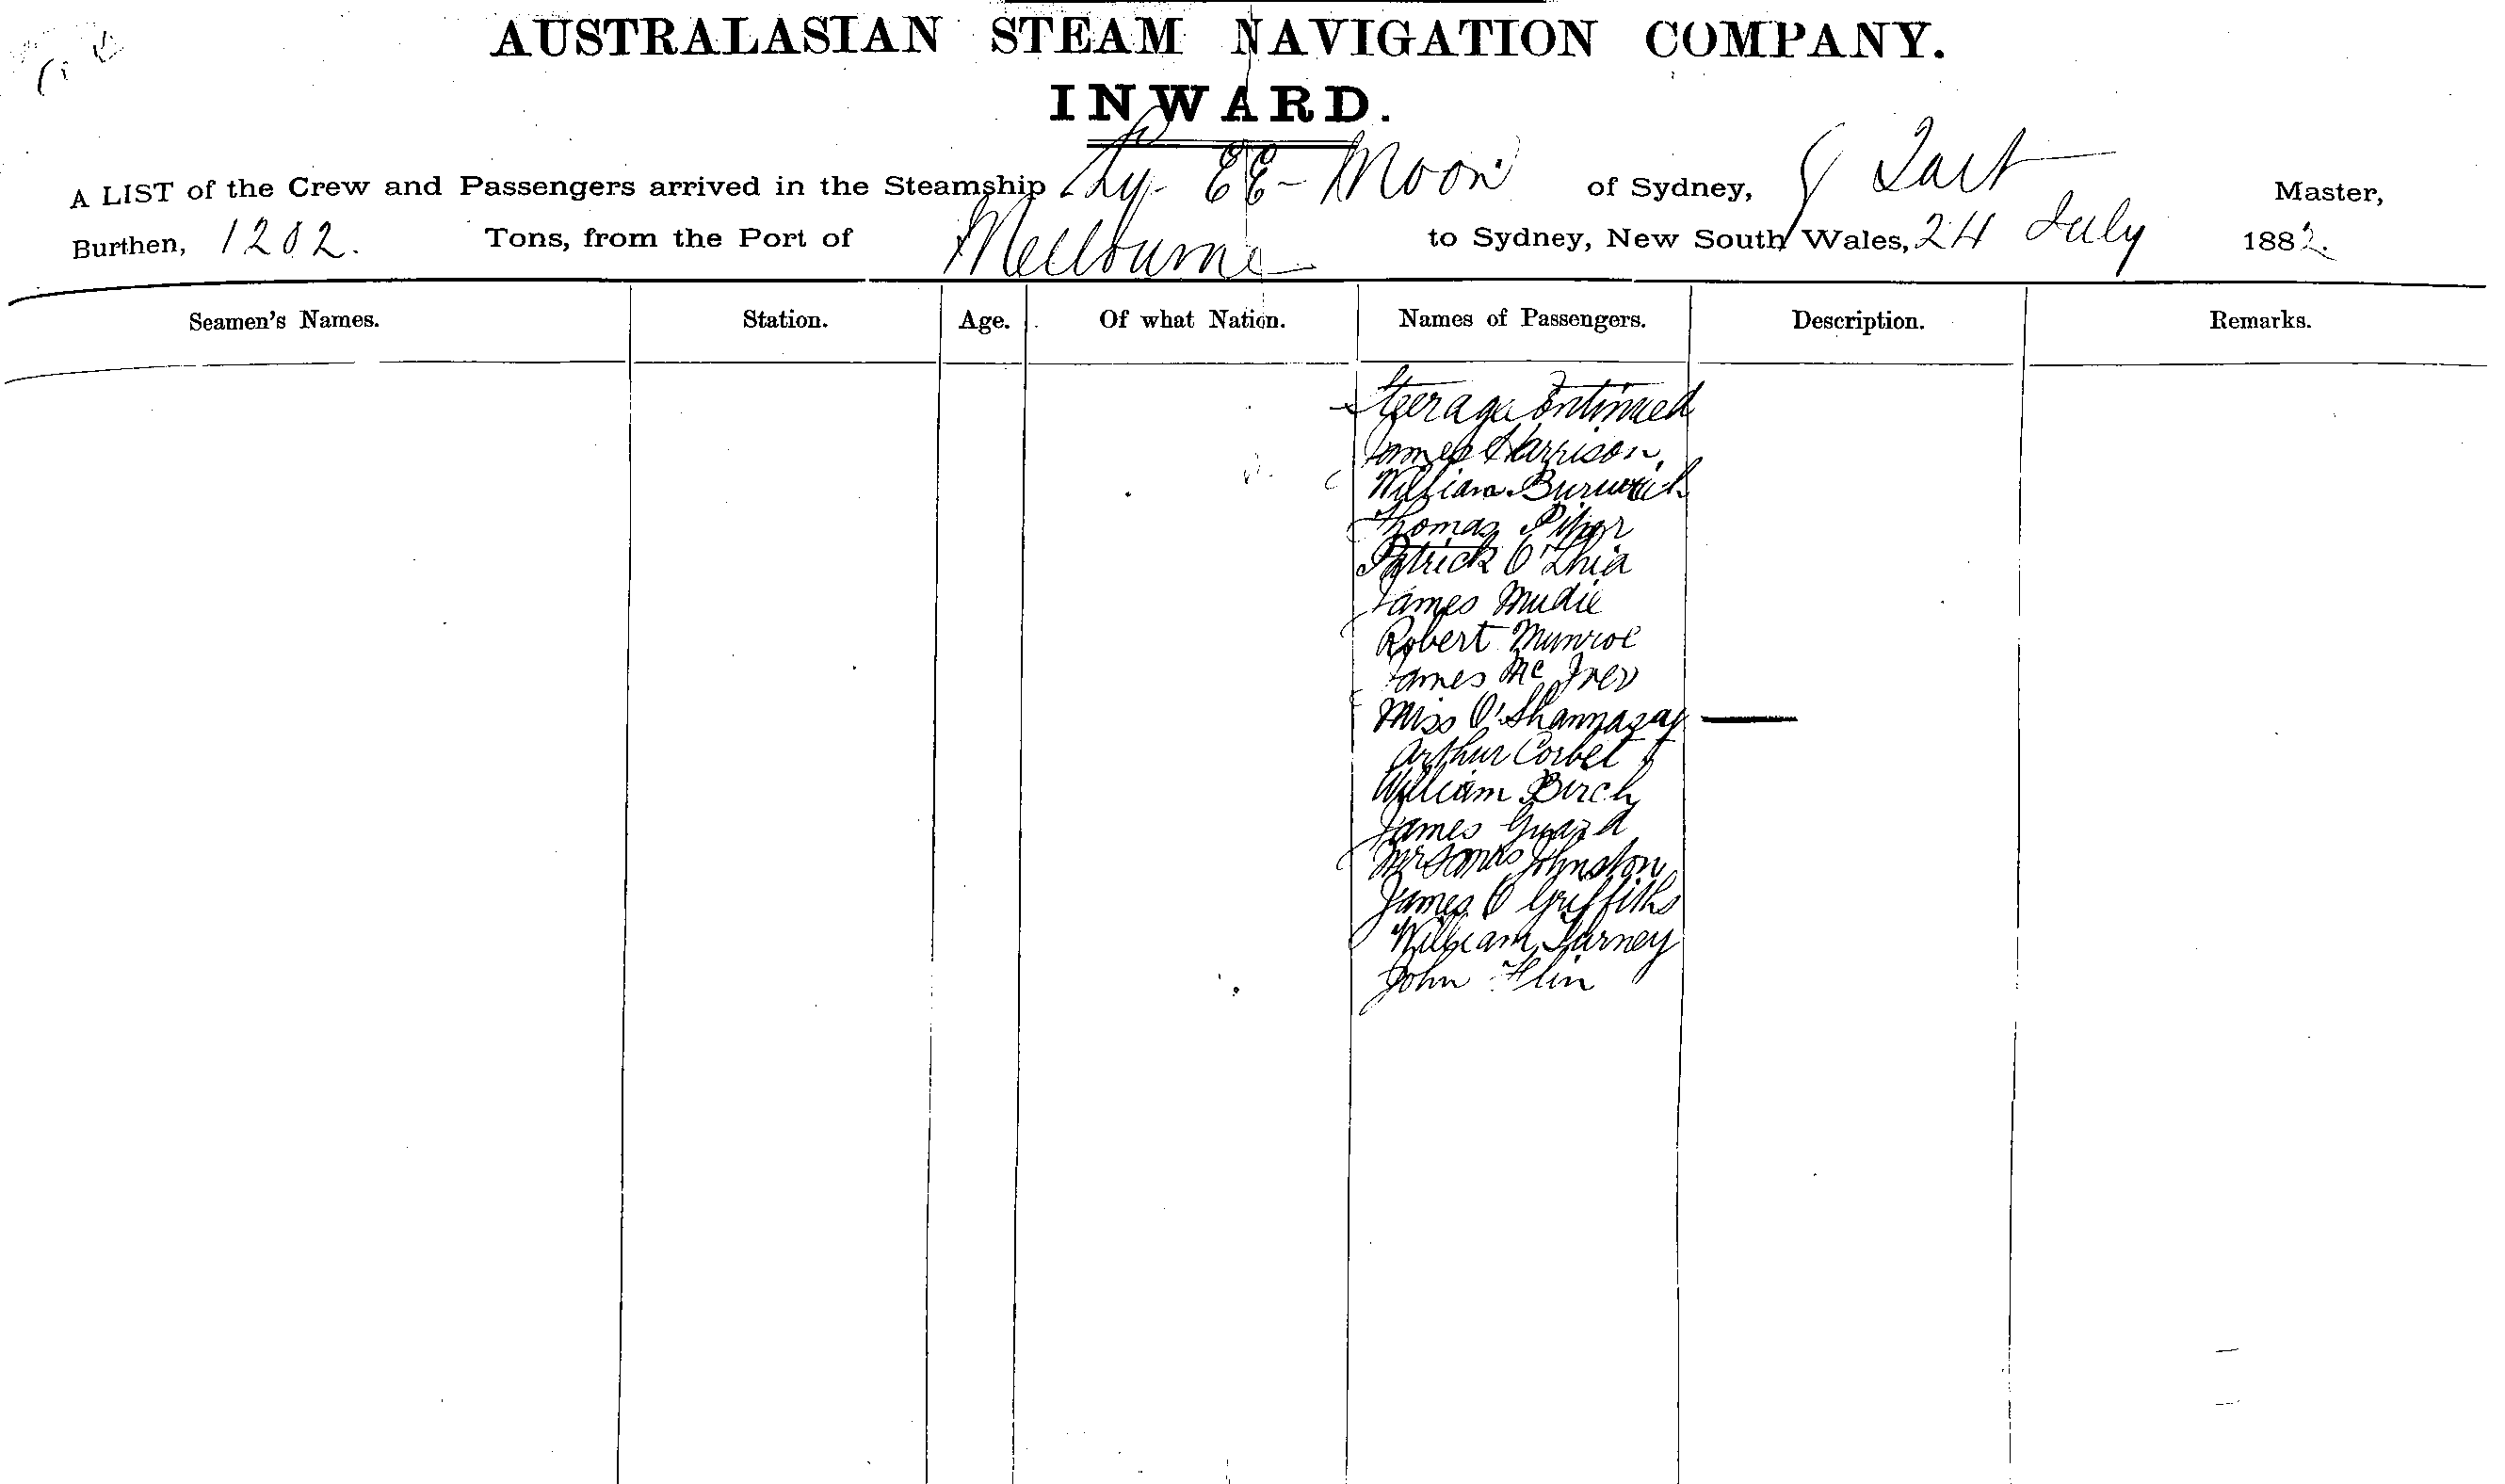 AUSTRALASIAN STEAM NAVIGATION COMPANY.
INWARD.
A LIST of the Crew and Passengers arrived in the Steamship Ly-EE-Moon of Sydney, Master,
Burthen, 1202. Tons, from the Port of Melbourne to Sydney, New South Wales, 24 July 1882.
Seamen's Names. Station. Age. Of what Nation. Names of Passengers. Description. Remarks.
Steerage Continued
James Harrison
William
Thomas Piper
Patrick
James Mudie
Robert Munroe
James Mc
Miss O'Shannassy
Arthur Corbet
William Birch
James Guard
Mr & Mrs Johnston
James O Griffiths
William
John Flin